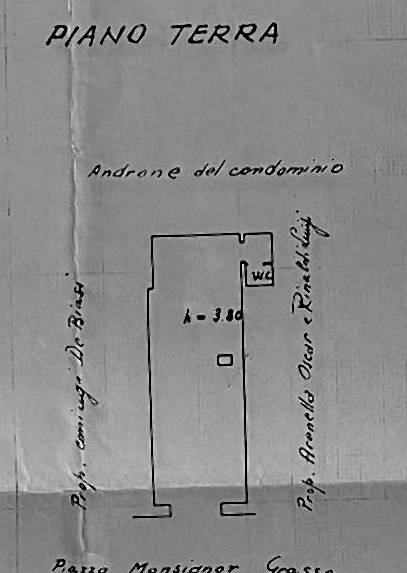 PIANO TERRA
Androne del condominio
WC
h = 3.80
Prop. coniugi De Biasi
Prop. Aronello Oscar e Rinaldi Luigi
Piazza Monsignor Grasso